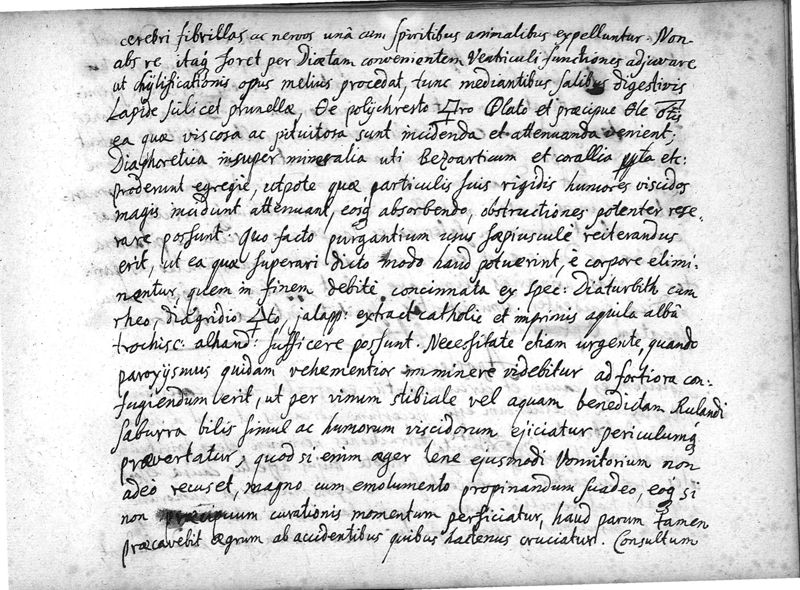 cerebri fibrillas, ac nervos unâ cum spiritibus animalibus expelluntur. Non
abs re itaq̃ foret per Diætam convenientem Ventriculi functiones adjuvare
ut chÿlificationis opus melius procedat, tunc mediantibus salibus digestivis
Lapide scilicet prunellæ, de polychresto 🜍ro Plato et præcipue
ea quæ viscosa ac pituitosa sunt incidenda et attenuanda venient;
Diaphoretica insuper mineralia uti Bezoarticum et corallia ppta etc:
proderunt egregiè, utpote quæ particulis suis rigidis humores viscidos
magis incidunt attenuant, eosq̃ absorbendo, obstructiones potenter rese-
rare possunt. Quo facto purgantium usus sæpiusculè reiterandus
erit, ut ea quæ superari dicto modo haud potuerint, è corpore elimi-
nentur, quem in finem debitè concinnata ex spec: Diaturbith cum
rheo, diagridio 🜍to, jalapp: extract catholic et imprimis aquila albâ
trochisc: alhand: sufficere possunt. Necessitate etiam urgente, quando
paroxijsmus quidam vehementior imminere videbitur ad fortiora con:
fugiendum erit, ut per vinum stibiale vel aquam benedictam Rulandi
saburra bilis simul ac humorum viscidorum ejiciatur periculumq̃
prævertatur, quod si enim æger lene ejusmodi Vomitorium non
adeo recuset, magno cum emolumento propinandum suadeo, eoq̃ si
non præcipuum curationis momentum perficiatur, haud parum tamen
præcavebit ægrum ab accidentibus quibus hactenus cruciatur. Consultum